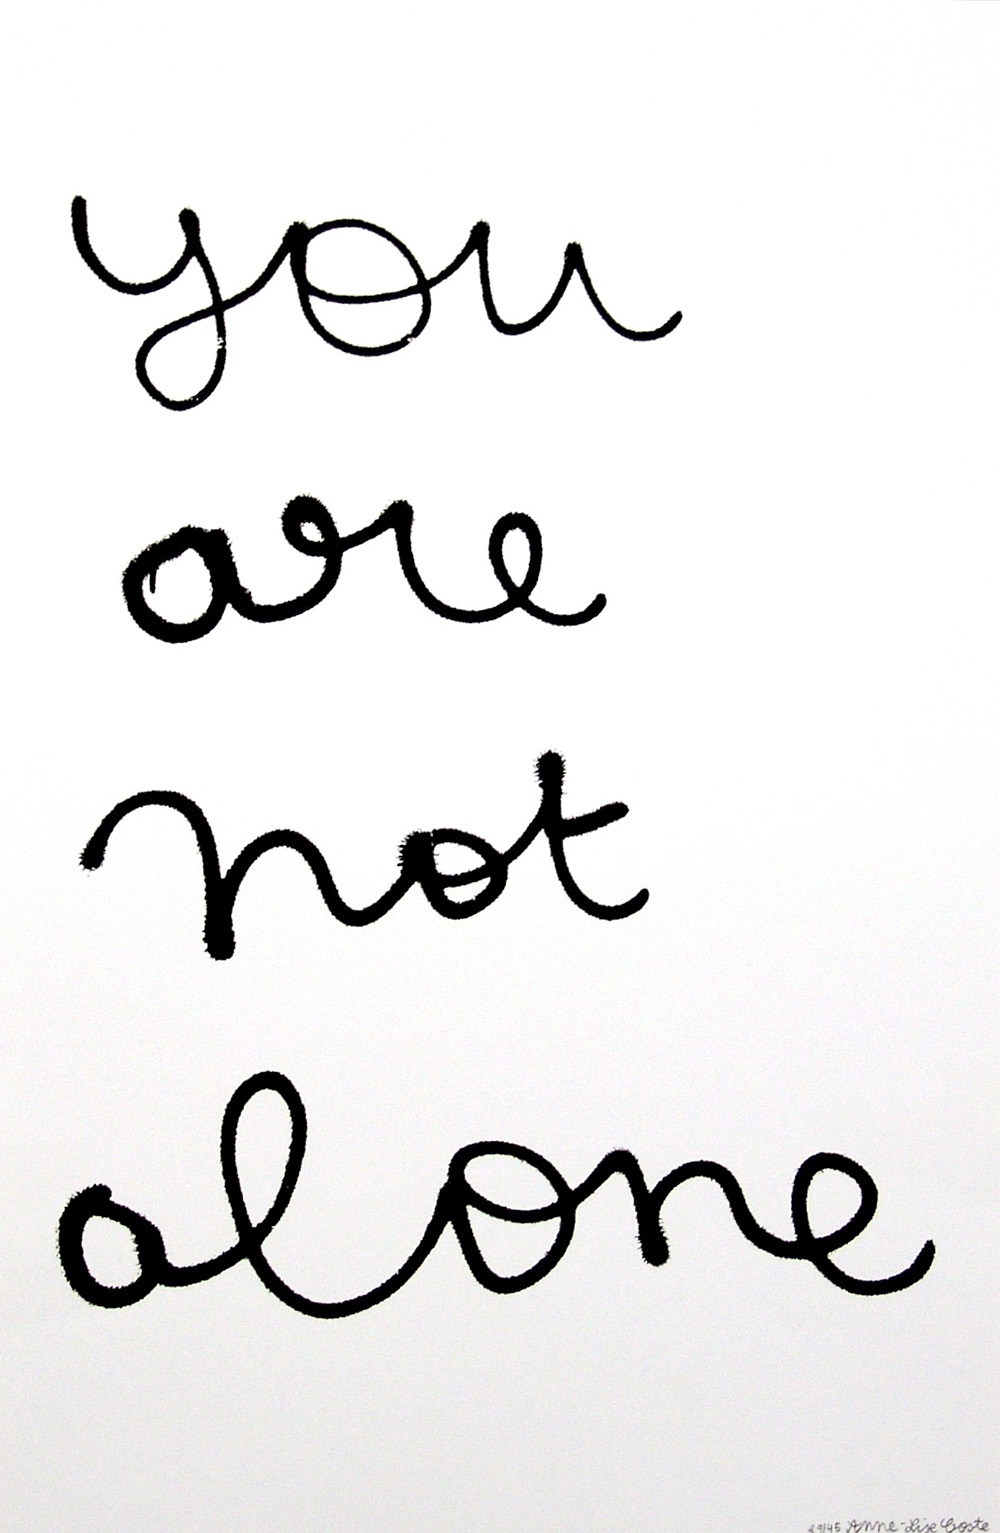 you
are
not
alone
29/45 Anne-Lise Coste